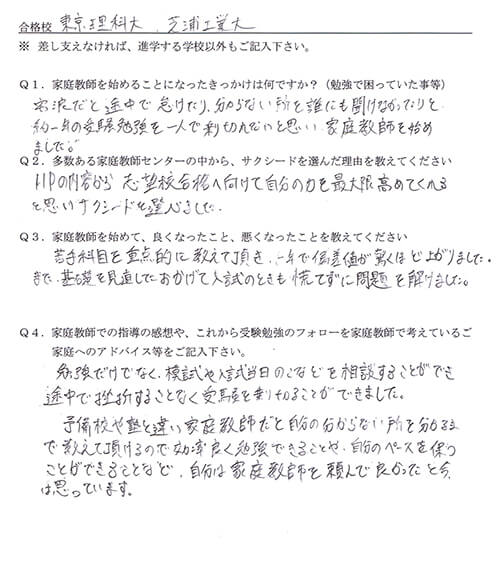 合格校 東京理科大、芝浦工業大
※ 差し支えなければ、進学する学校以外もご記入下さい。
Q1．家庭教師を始めることになったきっかけは何ですか？（勉強で困っていた事等）
浪だと途中で怠けたり、分からない所を誰にも聞けなかったりと
約一年の受験勉強を一人で乗り切れないと思い家庭教師を始め
ました。
Q2．多数ある家庭教師センターの中から、サクシードを選んだ理由を教えてください
HPの内容から志望校合格へ向けて自分の力を最大限高めてくれる
と思いサクシードを選びました。
Q3．家庭教師を始めて、良くなったこと、悪くなったことを教えてください
苦手科目を重点的に教えて頂き、一年で偏差値が驚くほど上がりました。
また、基礎を見直したおかげで入試のときも慌てずに問題を解けました。
Q4．家庭教師での指導の感想や、これから受験勉強のフォローを家庭教師で考えているご
家庭へのアドバイス等をご記入下さい。
勉強だけでなく、模試や入試当日のことなどを相談することができ
途中で挫折することなく受験を乗り切ることができました。
予備校や塾と違い家庭教師だと自分の分からない所を分かるま
で教えて頂けるので効率良く勉強できることや、自分のペースを保つ
ことができることなど、自分は家庭教師を頼んで良かったと今
は思っています。